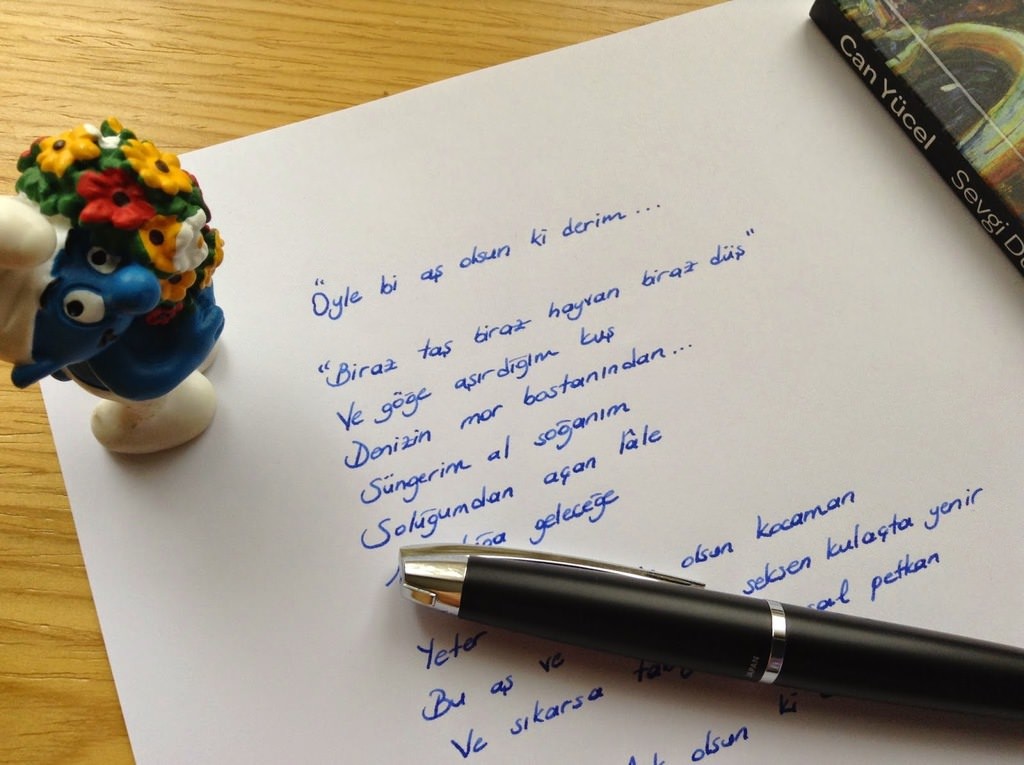 "Öyle bi aş olsun ki derim...
"Biraz taş biraz hayvan biraz düş"
Ve göğe aşırdığım kuş
Denizin mor bostanından...
Süngerim al soğanım
Soluğumdan açan lâle
geleceğe
olsun kocaman
seksen kulaçta yenir
petkan
Yeter
Bu aş ve
Ve sıkarsa ki
olsun
Can Yücel Sevgi
JAPAN